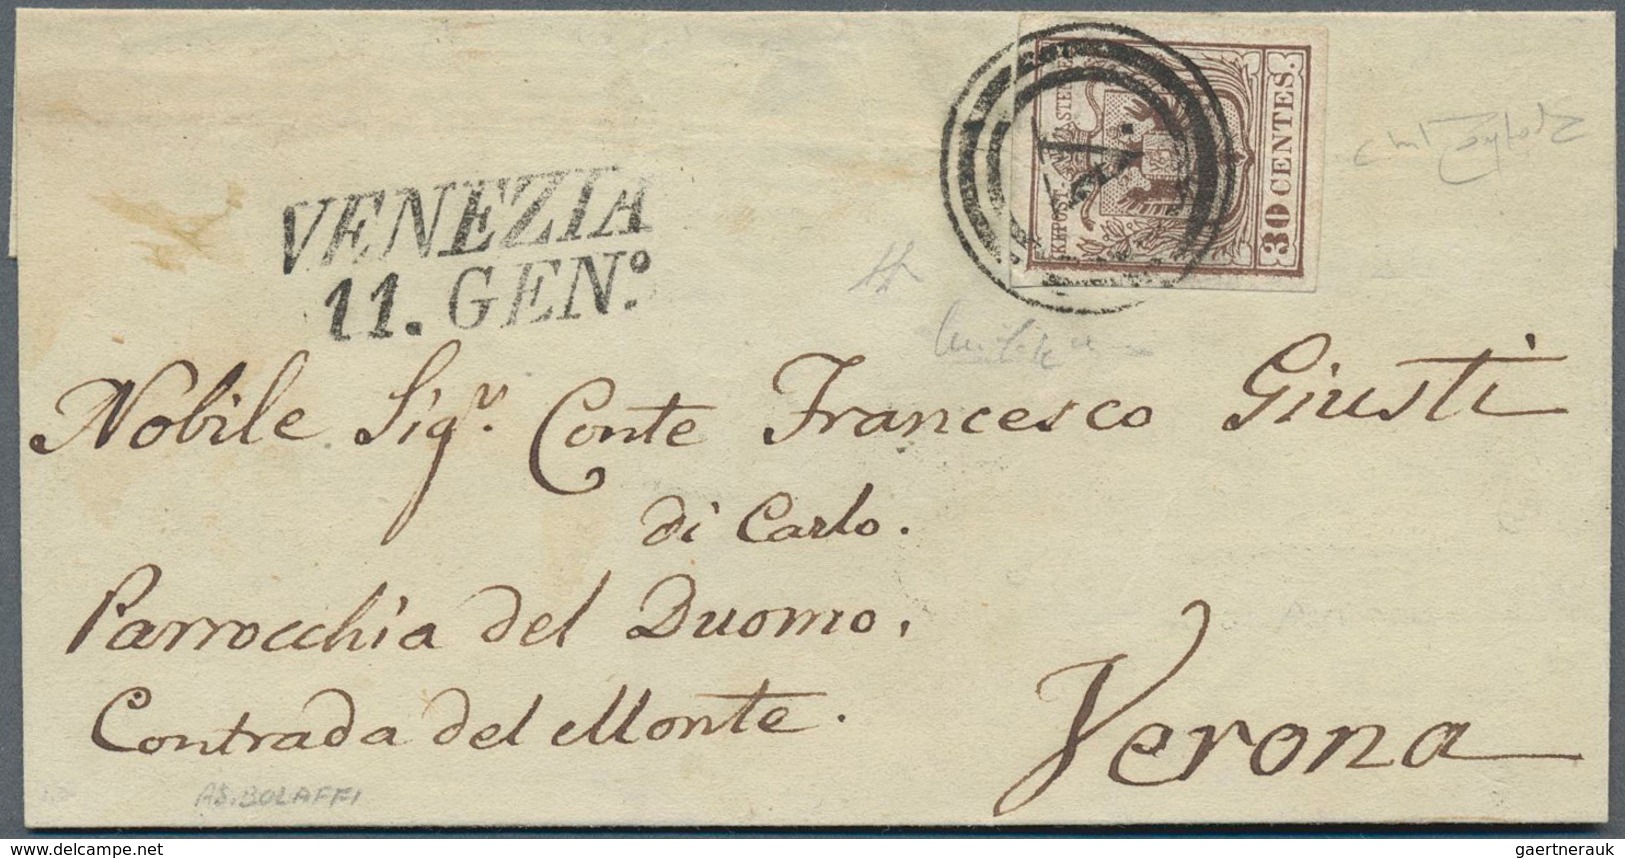 VENEZIA
11. GENº
A.
KKPOST-
30 CENTES.
Nobile Sigr. Conte Francesco Giusti
di Carlo.
Parrocchia del Duomo,
Contrada del Monte.
Verona
AS. BOLAFFI
www.delcampe.net
gaertnerauk